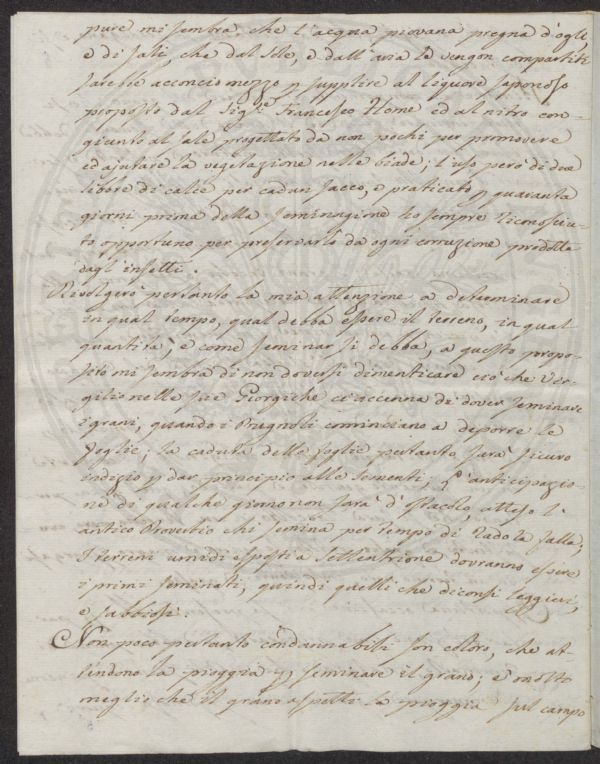 pure mi sembra, che l'acqua piovana pregna d'oglj,
e di sali, che dal Sole, e dall'aria le vengon compartiti
sarebbe acconcio mezzo p supplire al liquore saponoso
proposto dal Sig.re Francesco Home ed al nitro con-
giunto al sale progettato da non pochi per promovere
ed ajutare la vegetazione nelle biade; l'uso però di due
libore di calce per cadun sacco, e praticato p quaranta
giorni prima della seminazione ho sempre riconosciu-
to opportuno per preservarlo da ogni corruzione prodotta
dagl'insetti.
Rivolgerò pertanto la mia attenzione a determinare
in qual tempo, qual debba essere il terreno, in qual
quantità, e come seminar si debba, a questo propo-
sito mi sembra di non doversi dimenticare ciò che Vir-
gilio nelle sue Giorgiche ci accenna di dover seminare
i grani, quando i Brugnoli cominciano a deporre le
foglie; la caduta delle foglie pertanto sarà sicuro
indizio p dar principio alle sementi; e l'anticipazio-
ne di qualche giorno non sarà d'ostacolo, atteso l'
antico Proverbio chi semina per tempo di rado la falla;
I terreni umidi esposti a settentrione dovranno essere
i primi seminati, quindi quelli che diconsi leggieri,
e sabbiosi.
Non poco pertanto condannabili son coloro, che at-
tendono la pioggia p seminare il grano; e molto
meglio che il grano aspetti la pioggia sul campo